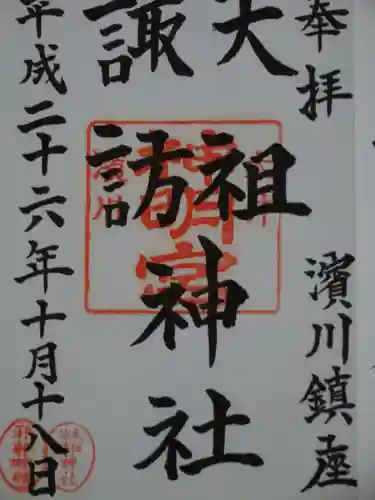 奉拝
濱川鎮座
大祖神社
諏訪神社
平成二十六年十月十八日